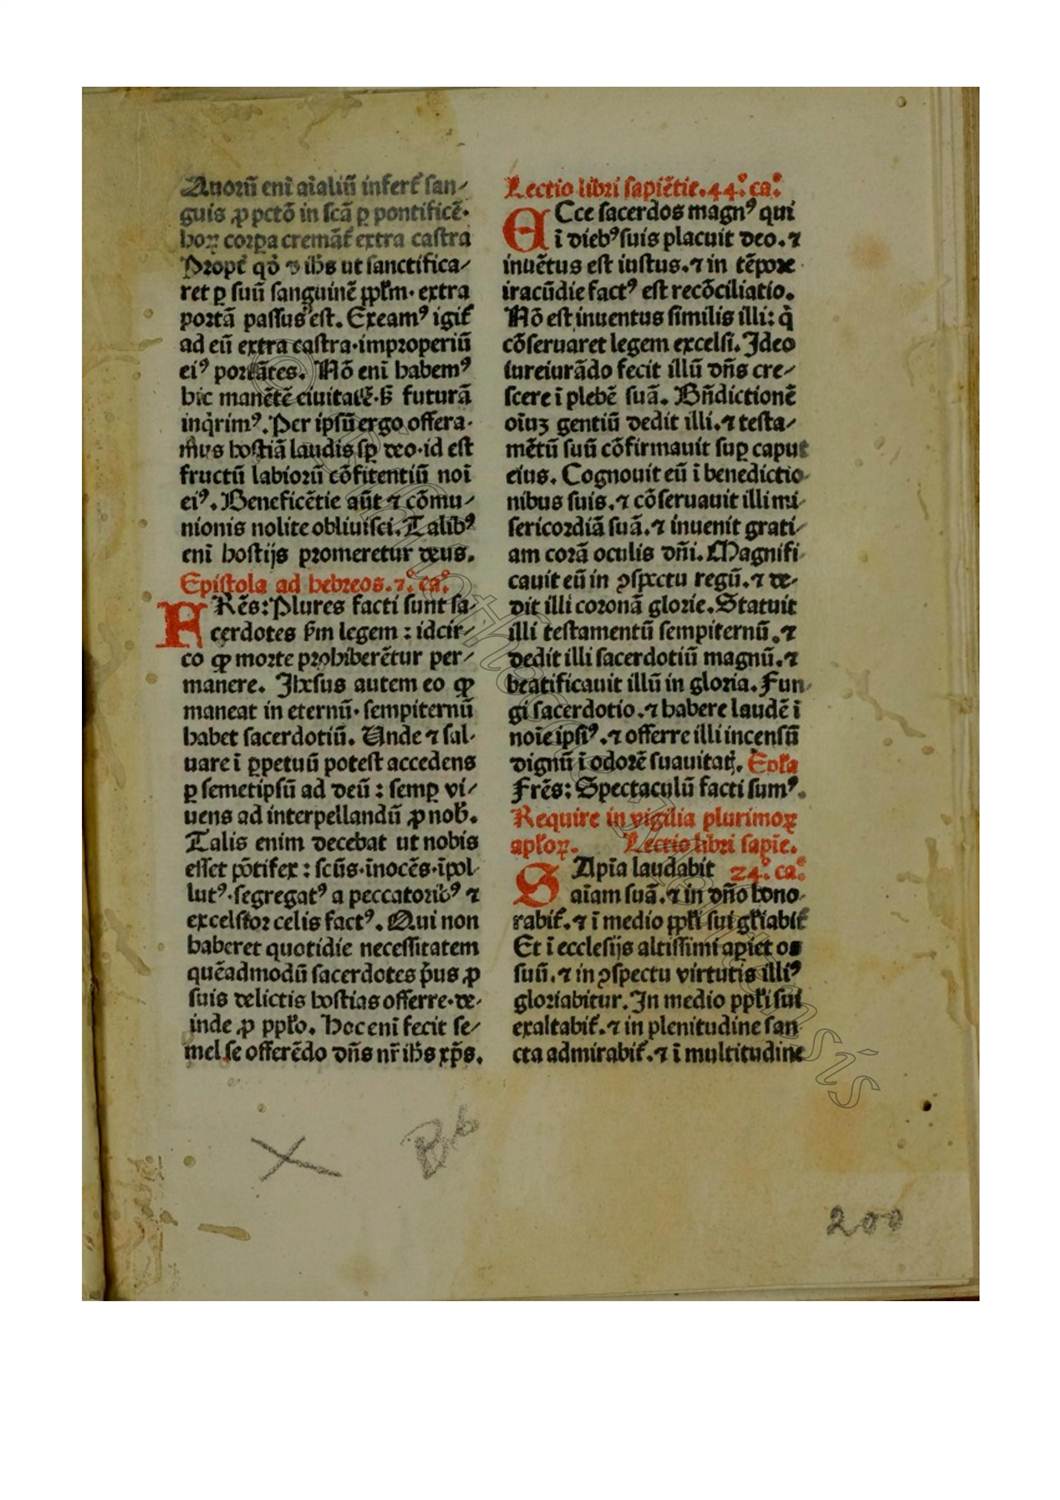 Quorū enī aīaliū infert̉ san⸗
guis ꝓ pctō in scā ꝑ pontificē·
hoꝝ corꝑa cremāt̉ extra castra
Propt̉ qd̉ ⁊ ihs̄ ut sanctifica⸗
ret ꝑ suū sanguinē pplm̄· extra
portā passus est. Exeamꝰ igit̉
ad eū extra castra·improperiū
eiꝰ portātes. Nō enī habemꝰ
hic manētē ciuitatē·s̄ꝫ futurā
inq̇rimꝰ. Per ipsū ergo offera·
mus hostiā laudis sꝑ deo·id est
fructū labiorū cōfitentiū noī
eiꝰ. Beneficētie aūt ⁊ cōmu⸗
nionis nolite obliuisci. Talibꝰ
enī hostijs promeretur deus.
Epistola ad hebreos.7.° ca.°
FRēs: Plures facti sunt sa⸗
cerdotes ẜm legem : idcir⸗
co ꝙ morte prohiberētur per⸗
manere. Jhesus autem eo ꝙ
maneat in eternū· sempiternū
habet sacerdotiū. Unde ⁊ sal⸗
uare ī ꝑpetuū potest accedens
ꝑ semetipsū ad deū : semꝑ vi⸗
uens ad interpellandū ꝓ nob̄.
Talis enim decebat ut nobis
esset pōtifex : scūs·īnocēs·īpol⸗
lutꝰ·segregatꝰ a peccatoribꝰ ⁊
excelsior celis factꝰ. Qui non
haberet quotidie necessitatem
quēadmodū sacerdotes p̄us ꝓ
suis delictis hostias offerre·de⸗
inde ꝓ pplo̅. Hoc enī fecit se⸗
mel se offerēdo dn̄s nr̄ ihs̄ xp̄s.
Lectio libri sapiētie.44.° ca.°
ECce sacerdos magnꝰ qui
ī diebꝰ suis placuit deo.⁊
inuētus est iustus.⁊ in tēpore
iracūdie factꝰ est recōciliatio.
Nō est inuentus similis illi: q̇
cōseruaret legem excelsi. Ideo
iureiurādo fecit illū dn̄s cre⸗
scere ī plebē suā. Bn̄dictionē
oīuꝫ gentiū dedit illi.⁊ testa⸗
mētū suū cōfirmauit suꝑ caput
eius. Cognouit eū ī benedictio
nibus suis.⁊ cōseruauit illi mi⸗
sericordiā suā.⁊ inuenit grati⸗
am corā oculis dn̄i. Magnifi
cauit eū in ꝯspectu regū.⁊ de⸗
dit illi coronā glorie. Statuit
illi testamentū sempiternū.⁊
dedit illi sacerdotiū magnū.⁊
beatificauit illū in gloria. Fun
gi sacerdotio.⁊ habere laudē ī
noīe ipsiꝰ.⁊ offerre illi incensū
dignū ī odorē suauitatꝭ. Epl̄a
Frēs: Spectaculū facti sumꝰ.
Require in vigilia plurimoꝝ
apl̄oꝝ. Lectio libri sapīe.
SApīa laudabit 24.° ca.°
aīam suā.⁊ in dn̄o hono
rabit̉.⁊ ī medio ppl̄i sui gl̄iabit̉
Et ī ecclesijs altissimi apiet os
suū.⁊ in ꝯspectu virtutis illiꝰ
gloriabitur. In medio ppl̄i sui
exaltabit̉.⁊ in plenitudine san
cta admirabit̉.⁊ ī multitudine
X Bb
200